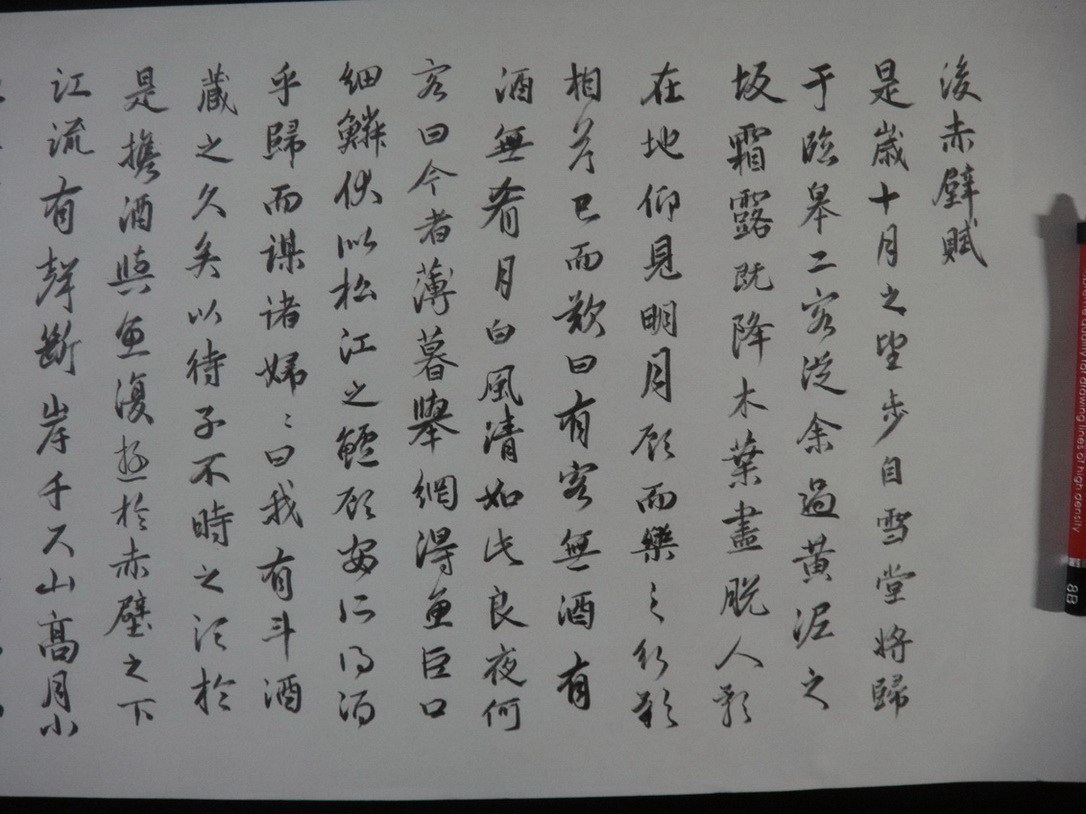 後赤壁賦
是歲十月之望步自雪堂將歸
于臨皋二客從余過黃泥之
坂霜露既降木葉盡脫人影
在地仰見明月顧而樂之行歌
相答已而歎曰有客無酒有
酒無肴月白風清如此良夜何
客曰今者薄暮舉網得魚巨口
細鱗狀似松江之鱸顧安所得酒
乎歸而謀諸婦〻曰我有斗酒
藏之久矣以待子不時之須於
是攜酒與魚復遊於赤壁之下
江流有聲斷岸千尺山高月小
8B